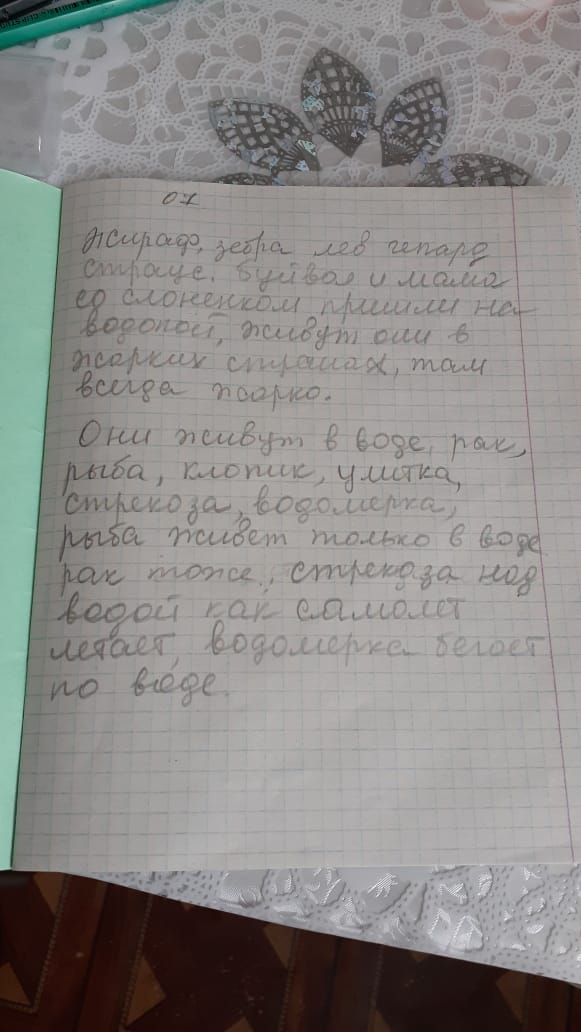 07
Жираф, зебра лев гепард
страус. буйвол и мама
со слоненком пришли на
водопой, живут они в
жарких странах, там
всегда жарко.
Они живут в воде, рак,
рыба, клопик, улитка,
стрекоза, водомерка,
рыба живет только в воде
рак тоже, стрекоза над
водой как самолет
летает, водомерка бегает
по воде.